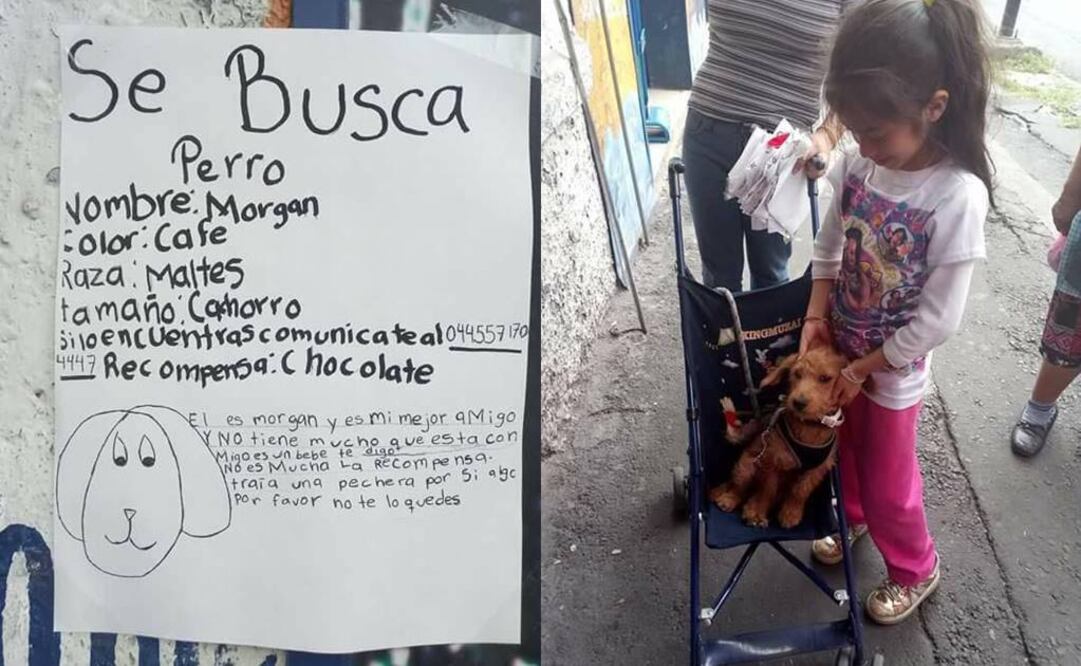 Se Busca
Perro
Nombre: Morgan
Color: Cafe
Raza: Maltes
tamaño: Cachorro
Si lo encuentras comunicate al 044557170
4447 Recompensa: Chocolate
El es morgan y es mi mejor aMigo
Y NO tiene mucho que esta con
Migo es un bebe te digo
No es Mucha La Recompensa.
traia una pechera por si algo
Por favor no te lo quedes